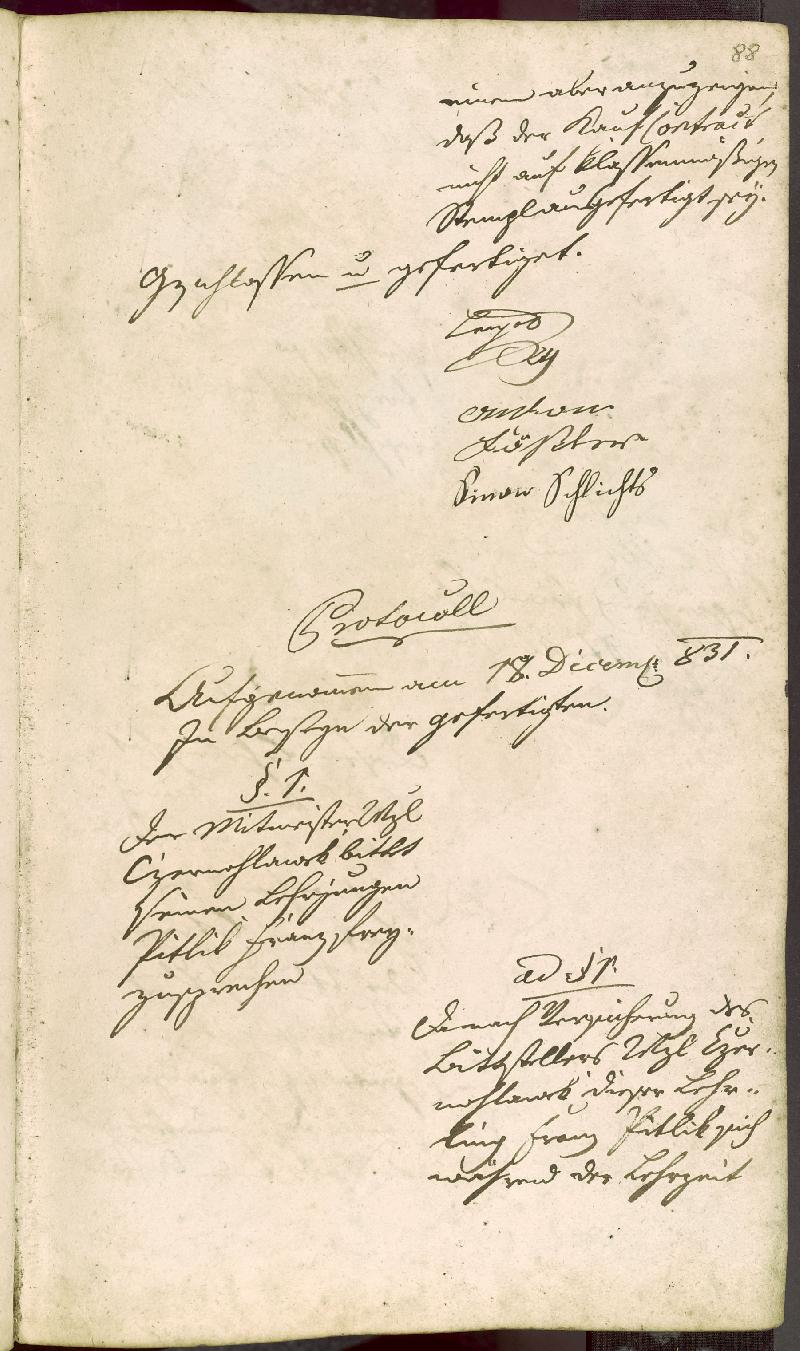 88
einem aber anzuzeigen,
daß der Kauf Contract
nicht auf klassenmäßigen
Stempl ausgefertigt sey.
Geschlossen u gefertiget.
Leopold
Anton
Simon Schlichts
Protocoll
Aufgenommen am 18. Decemb: 831.
In Beyseyn der gefertigten.
§. 1.
Der Mitmeister Wzl
Czernohlawek bittet
seinen Lehrjungen
Pitlik Franz frey-
zusprechen
ad §1.
Da nach Versicherung des
Bittstellers Wzl Czer-
nohlawek dieser Lehr-
ling Franz Pitlik sich
während der Lehrzeit